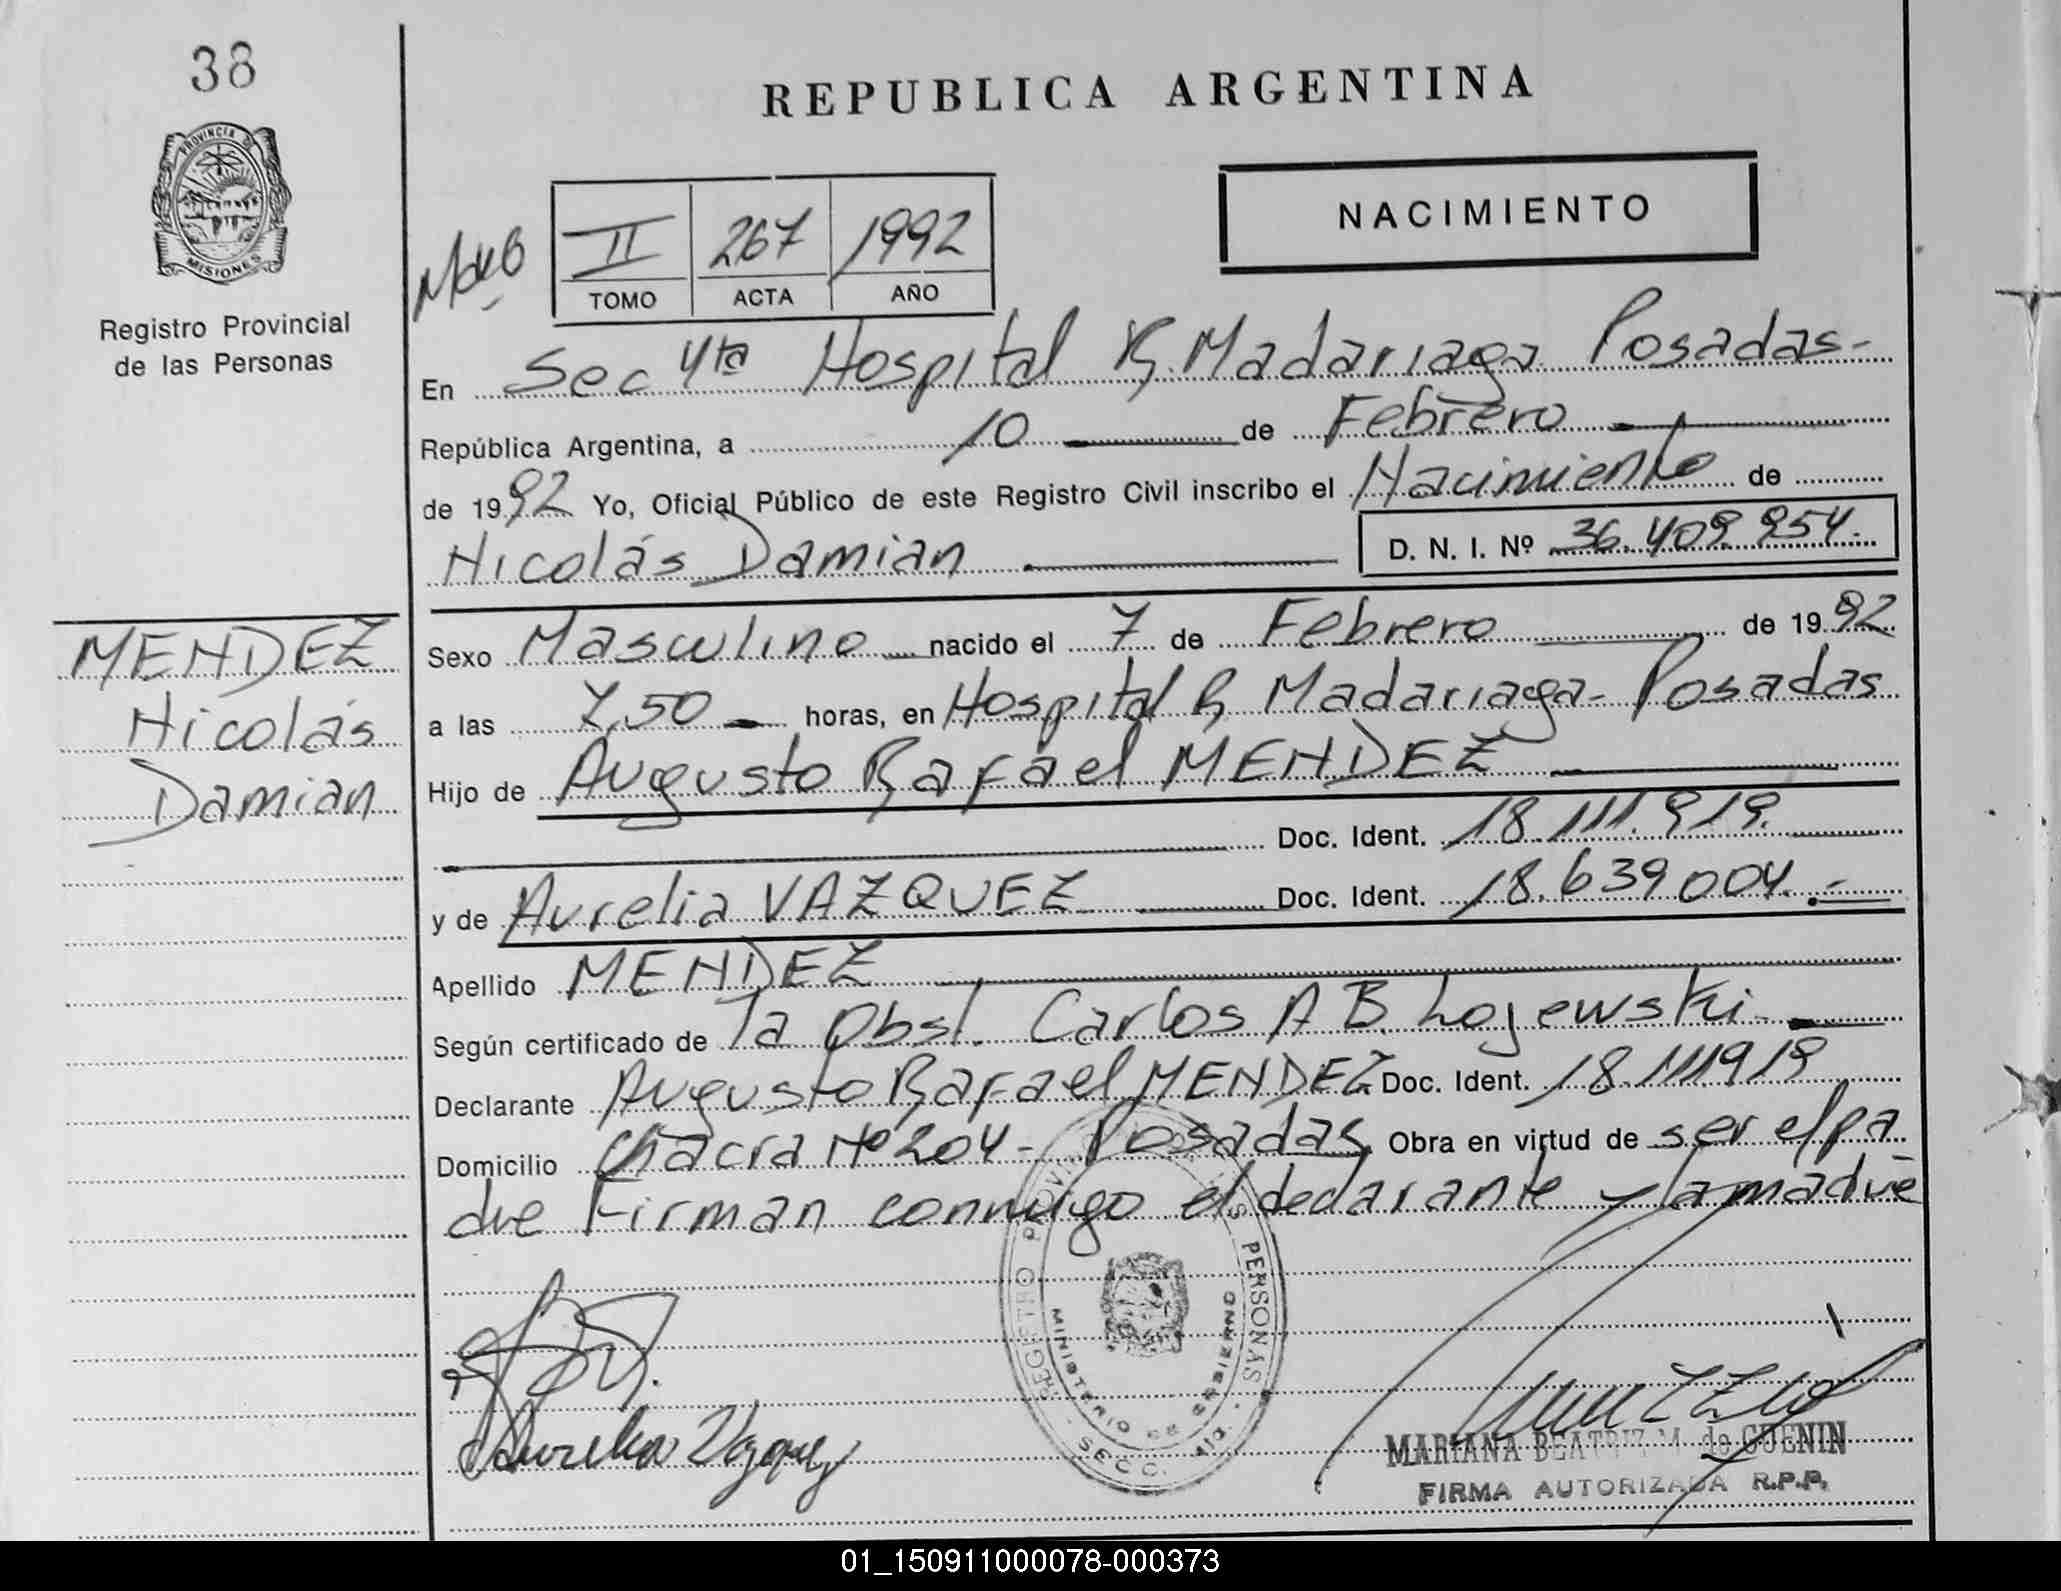 38
REPUBLICA ARGENTINA
PROVINCIA DE
MISIONES
Registro Provincial
de las Personas
NACIMIENTO
II 267 1992
TOMO ACTA AÑO
En Sec 4ta Hospital R. Madariaga Posadas-
República Argentina, a 10 de Febrero
de 1992 Yo, Oficial Público de este Registro Civil inscribo el Nacimiento de
Nicolás Damián D. N. I. Nº 36.409.954.
MENDEZ
Nicolás
Damián
Sexo Masculino nacido el 7 de Febrero de 1992
a las 7,50 horas, en Hospital R, Madariaga- Posadas
Hijo de Augusto Rafael MENDEZ
Doc. Ident. 18.111.919.
y de Aurelia VAZQUEZ Doc. Ident. 18.639004.-
Apellido MENDEZ
Según certificado de la Obst. Carlos A B. Lojewski-
Declarante Augusto Rafael MENDEZ Doc. Ident. 18.111919
Domicilio Chacra Nº 204- Posadas Obra en virtud de ser el pa
dre Firman conmigo el declarante y la madre
REGISTRO PROVINCIAL DE LAS PERSONAS
MINISTERIO DE GOBIERNO
SECC. 4ta.
Aurelia Vazquez
MARIANA BEATRIZ M. de GUENIN
FIRMA AUTORIZADA R.P.P.
01_150911000078-000373